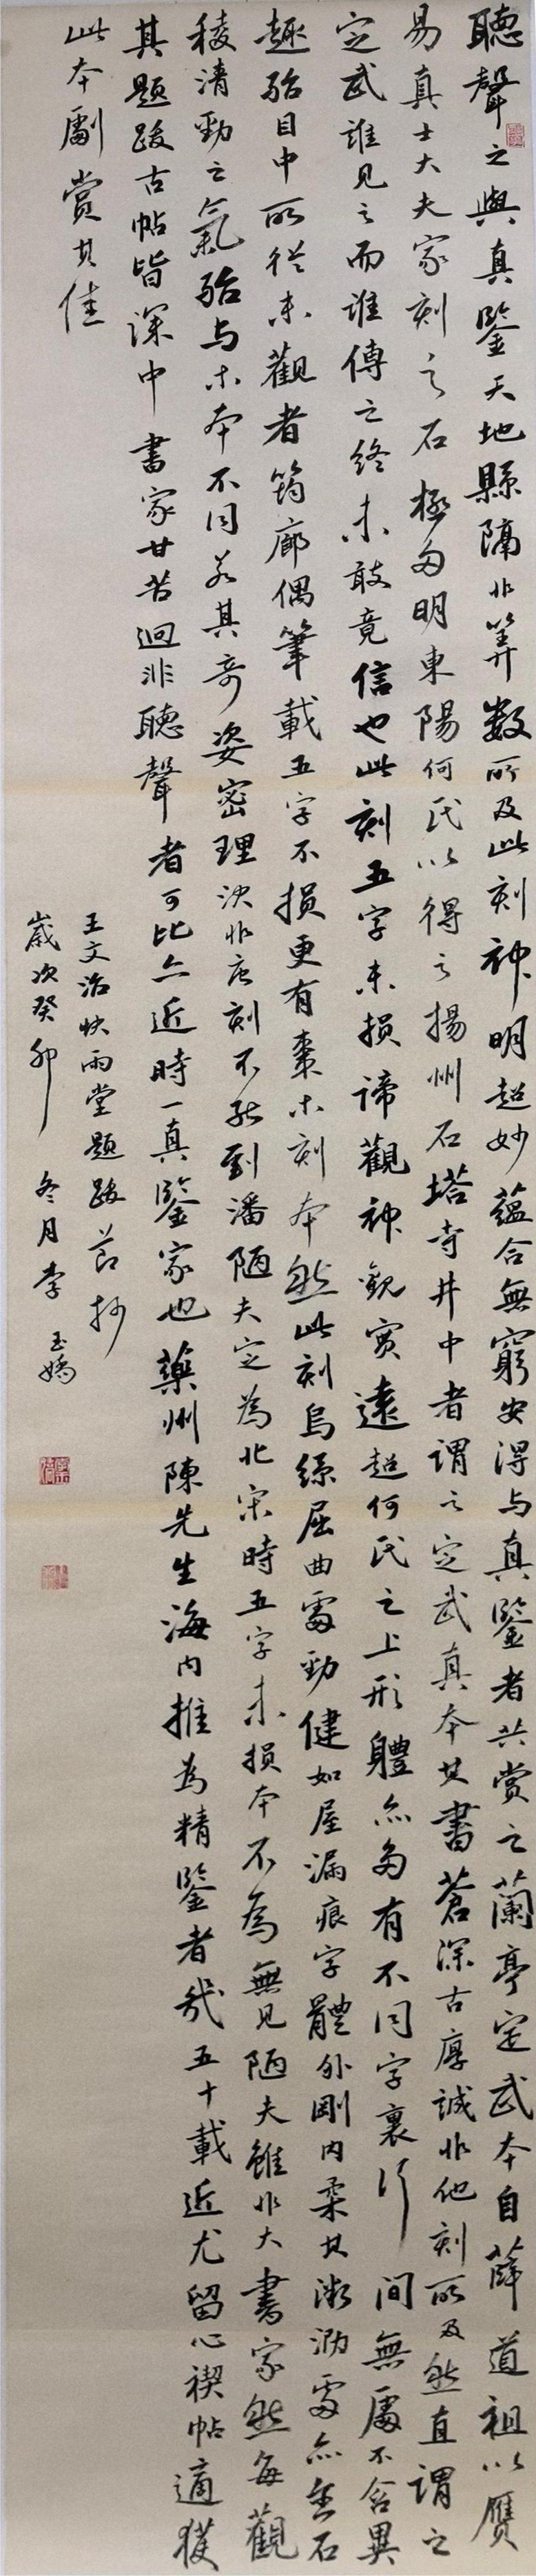 聽聲之與真鑒天地縣隔非筭數所及此刻神明超妙蘊含無窮安得与真鑒者共賞之蘭亭定武本自薛道祖以贋
易真士大夫家刻之石極多明東陽何氏以得之揚州石塔寺井中者謂之定武真本其書蒼深古厚誠非他刻所及然直謂之
定武誰見之而誰傳之終未敢竟信也此刻五字未損諦觀神觀實遠超何氏之上形體亦多有不同字裏行間無處不含異
趣殆目中所從未觀者筠廊偶筆載五字不損更有棗木刻本然此刻烏絲屈曲處勁健如屋漏痕字體外剛内柔其渺泐處亦無石
稜清勁之氣殆与木本不同若其奇姿密理決非唐刻不能到潘陋夫定為北宋時五字未損本不為無見陋夫雖非大書家然每觀
其題跋古帖皆深中書家甘苦迥非聽聲者可比亦近時一真鑒家也藥州陳先生海内推為精鑒者幾五十載近尤留心禊帖適獲
此本劇賞其佳
王文治快雨堂題跋節抄
歲次癸卯冬月李玉嬌